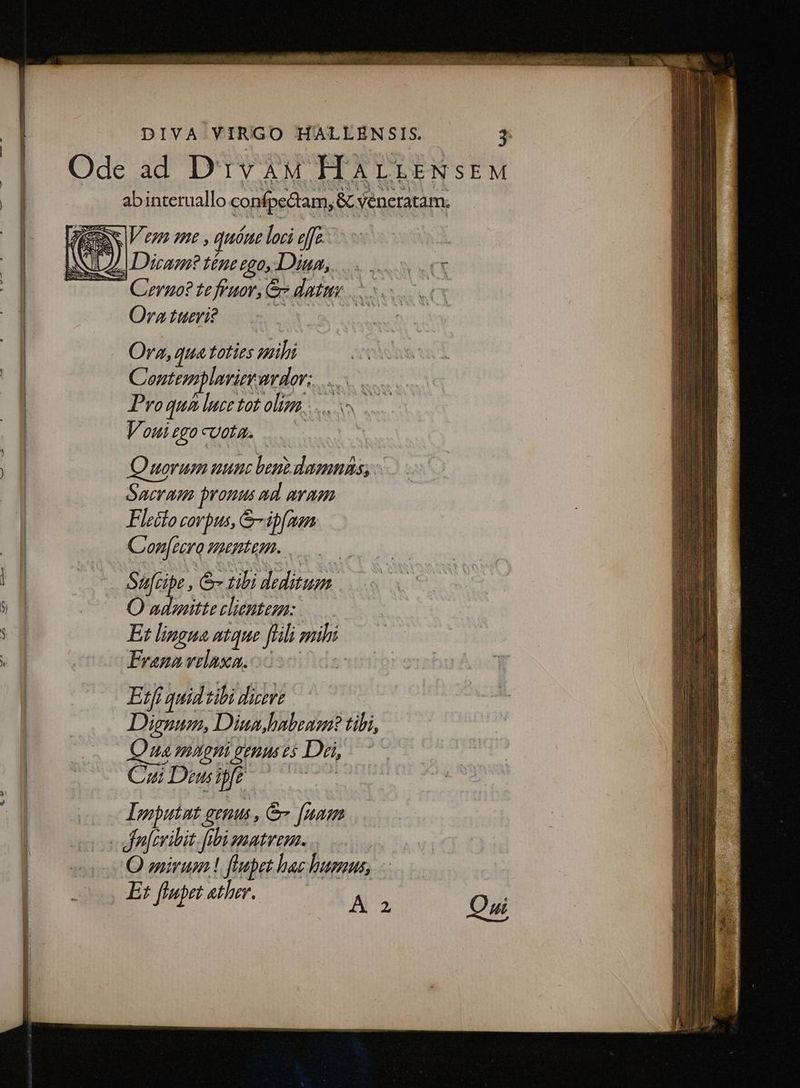 DIVA VIRGO HALLENSIS. 3
Ode ad DIVAM HALLENSEM
ab interuallo conſpectam, & veneratam.
QVem me, quóue loci eſſe
Dicam? téne ego, Diua,
Cerno? te fruor, & datur
Ora tueri?
Ora, quæ toties mihi
Contemplarier ardor:
Pro quâ luce tot olim
Voui ego vota.
Quorum nunc benè damnâs,
Sacram pronus ad aram
Flecto corpus, & ipſam
Conſecro mentem.
Suſcipe, & tibi deditum
O admitte clientem:
Et linguæ atque ſtili mihi
Fræna relaxa.
Etſi quid tibi dicere
Dignum, Diua, habeam? tibi,
Quæ magni genus es Dei,
Cui Deus ipſe
Imputat genus, & ſuam
Inſcribit ſibi matrem.
O mirum! ſtupet hæc humus,
Et ſtupet æther.
A 2 Qui